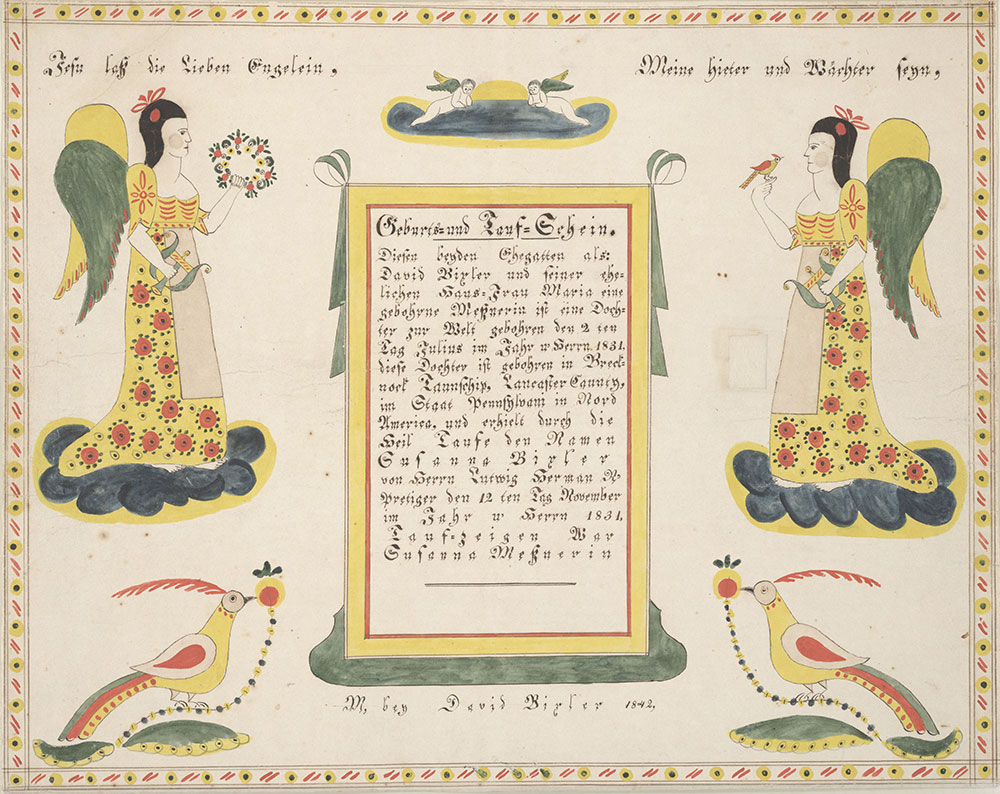 Jesu laß die Lieben Engelein,
Meine hieter und Wächter seyn,
Geburts=und Tauf=Schein.
Diesen beyden Ehegatten als:
David Bixler und seiner ehe-
lichen Haus=Frau Maria eine
gebohrne Meßnerin ist eine Doch-
ter zur Welt gebohren den 2 ten
Tag Julius im Jahr Herrn 1831.
diese Dochter ist gebohren in Breck-
nock Taunschip, Lancaster County,
im Staat Pennsylvani in Nord
America, und erhielt durch die
Heil Taufe den Namen
Susanna Bixler
von Herrn Lutwig Herman
Pretiger den 12 ten Tag November
im Jahr Herrn 1831,
Tauf=zeigen War
Susanna Meßnerin
M, bey David Bixler 1842,